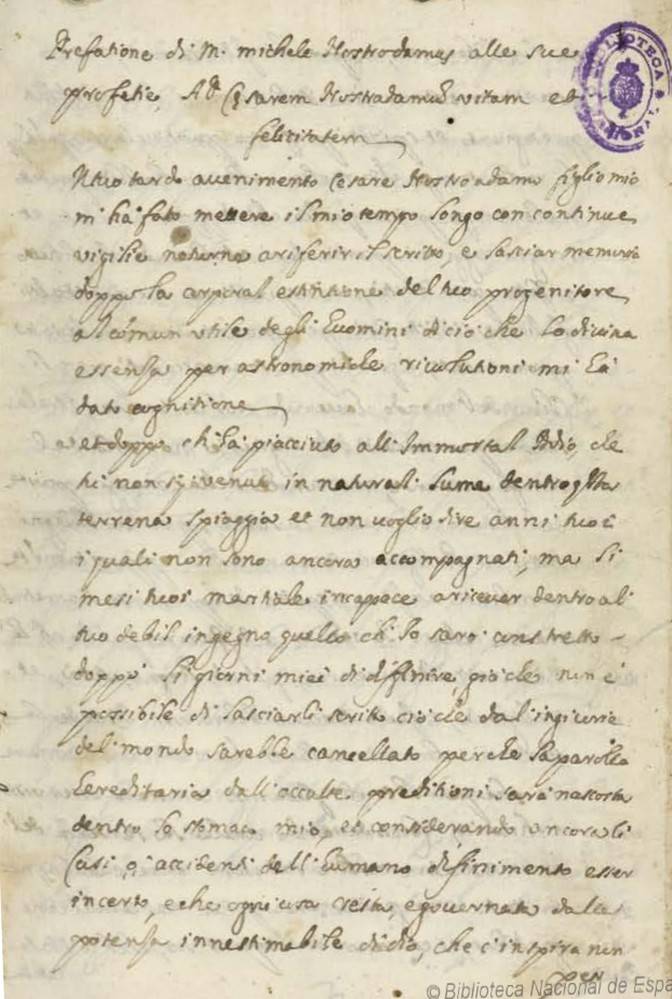 Prefatione di M. Michele Nostrodamus alle sue
profetie, Ad Cesarem Nostradamus vitam et
felicitatem
Il tuo tardo avenimento Cesare Nostradamo figlio mio
m'hà fato mettere il mio tempo longo con continue
vigilie noturne à riferir il scritto, e lasciar memoria
doppò la corporal estintione del tuo progenitore
al comun utile degli huomini di ciò che la divina
essensa per astronomiche rivolutioni mi hà
dato cognitione
et doppò ch'hà piacciuto all'Immortal Iddio, che
tu non sij venuto in natural lume dentro
terrena spiaggia et non voglio dire anni tuoi
i quali non sono ancora accompagnati, ma li
mesi tuoi martiale incapace à ricever dentro al
tuo debil ingegno quello ch'io sarò constretto
doppò li giorni miei di difinire, già che non è
possibile di lasciarli scritto ciò che dal ingiurie
del mondo sarebbe cancellato perche la parolla
hereditaria dall'occulte preditioni sarà nascosta
dentro lo stomaco mio, et considerando ancora li
Casi, o accidenti dell'humano difinimento esser
incerto, e che ogni cosa resta e governata dalla
potensa innestimabile di dio, che c'inspira non
per
BIBLIOTECA NACIONAL
© Biblioteca Nacional de Espa